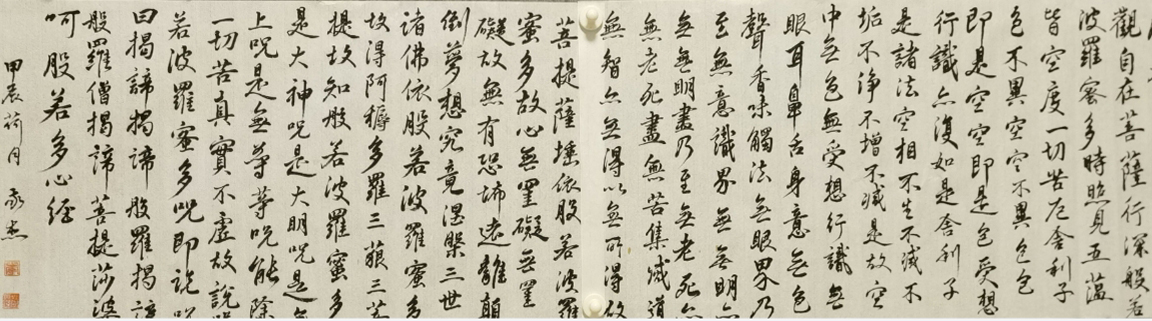 觀自在菩薩行深般若
波羅蜜多時照見五蘊
皆空度一切苦厄舍利子
色不異空空不異色色
即是空空即是色受想
行識亦復如是舍利子
是諸法空相不生不滅不
垢不淨不增不減是故空
中無色無受想行識無
眼耳鼻舌身意無色
聲香味觸法無眼界乃
至無意識界無無明亦
無無明盡乃至無老死亦
無老死盡無苦集滅道
無智亦無得以無所得故
菩提薩埵依般若波羅
蜜多故心無罣礙無罣
礙故無有恐怖遠離顛
倒夢想究竟涅槃三世
諸佛依般若波羅蜜多
故得阿耨多羅三藐三菩
提故知般若波羅蜜多
是大神咒是大明咒是無
上咒是無等等咒能除
一切苦真實不虛故說般
若波羅蜜多咒即說咒
曰揭諦揭諦般羅揭諦
般羅僧揭諦菩提莎婆
呵般若多心經
甲辰荷月